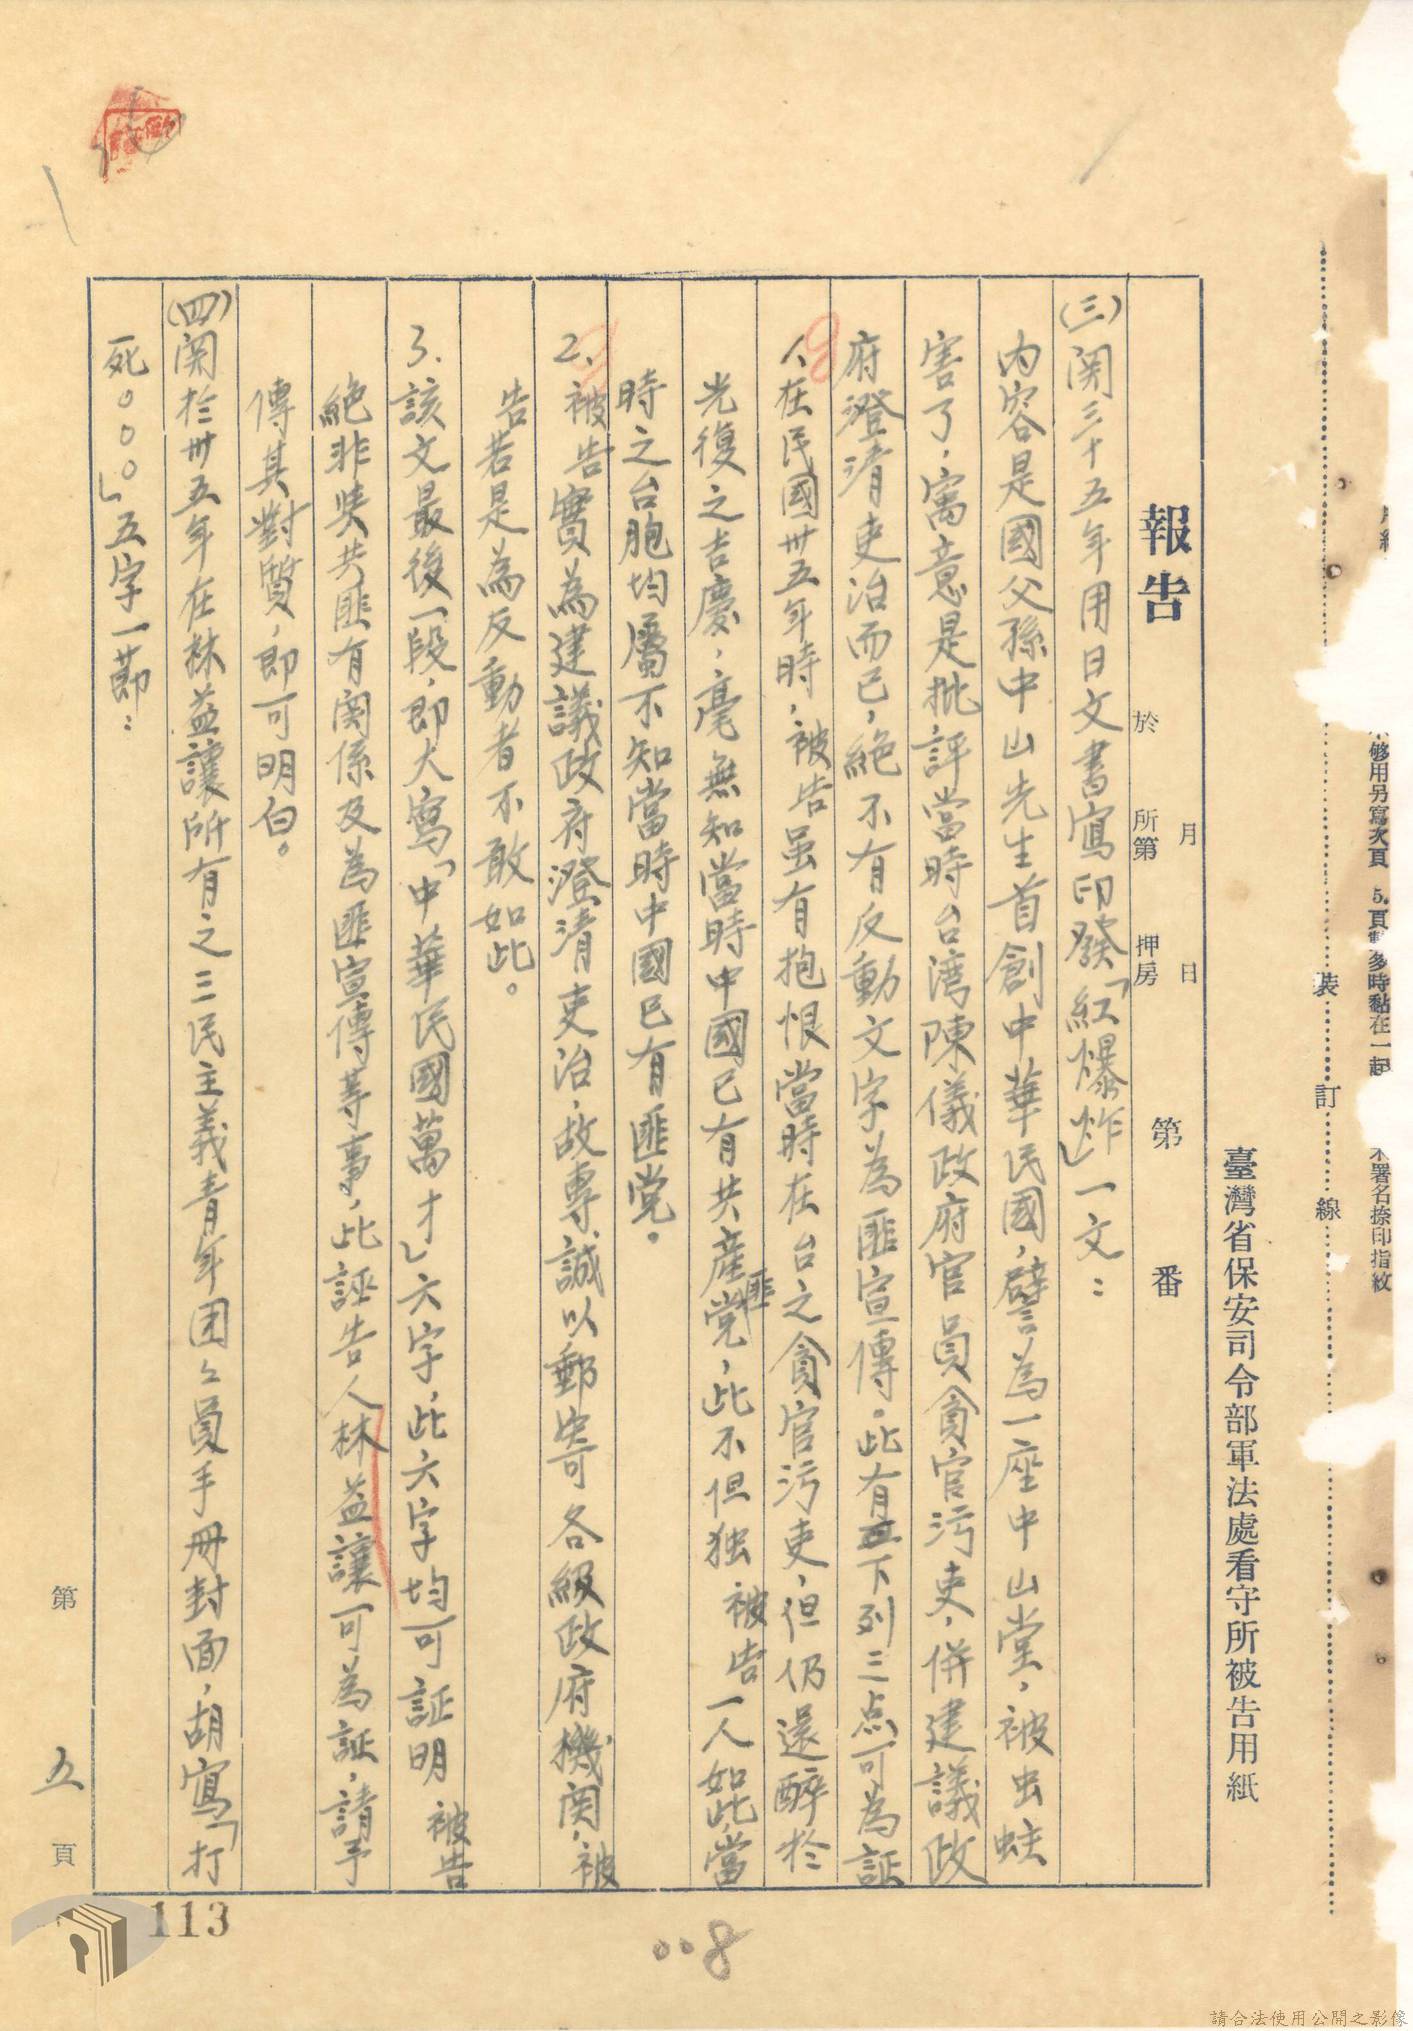 不够用另寫次頁 5.頁數多時黏在一起
未署名捺印指紋
裝 訂 線
臺灣省保安司令部軍法處看守所被告用紙
報告 於 所第 押房 月 日 第 番
(三)関三十五年用日文書寫印發「紅爆炸」一文：
內容是國父孫中山先生首創中華民國，譬為一座中山堂，被虫蛀
害了，寓意是批評當時台湾陳儀政府官員貪官污吏，併建議政
府澄清吏治而已，絕不有反動文字為匪宣傳。此有下列三点可為証
1、在民國卅五年時，被告虽有抱恨當時在台之貪官污吏，但仍還醉於
光復之吉慶，毫無知當時中國已有共產匪党，此不但独被告一人如此，當
時之台胞均屬不知當時中國已有匪党。
2、被告實為建議政府澄清吏治，故專誠以郵寄各級政府機関，被
告若是為反動者不敢如此。
3、該文最後一段，即大寫「中華民國萬才」六字，此六字均可証明被告
絕非與共匪有関係及為匪宣傳等事，此誣告人林益讓可為証，請予
傳其對質，即可明白。
(四)関於卅五年在林益讓所有之三民主義青年团々員手冊封面，胡寫「打
死○○○」五字一節：
第 五 頁
113
008
請合法使用公開之影像